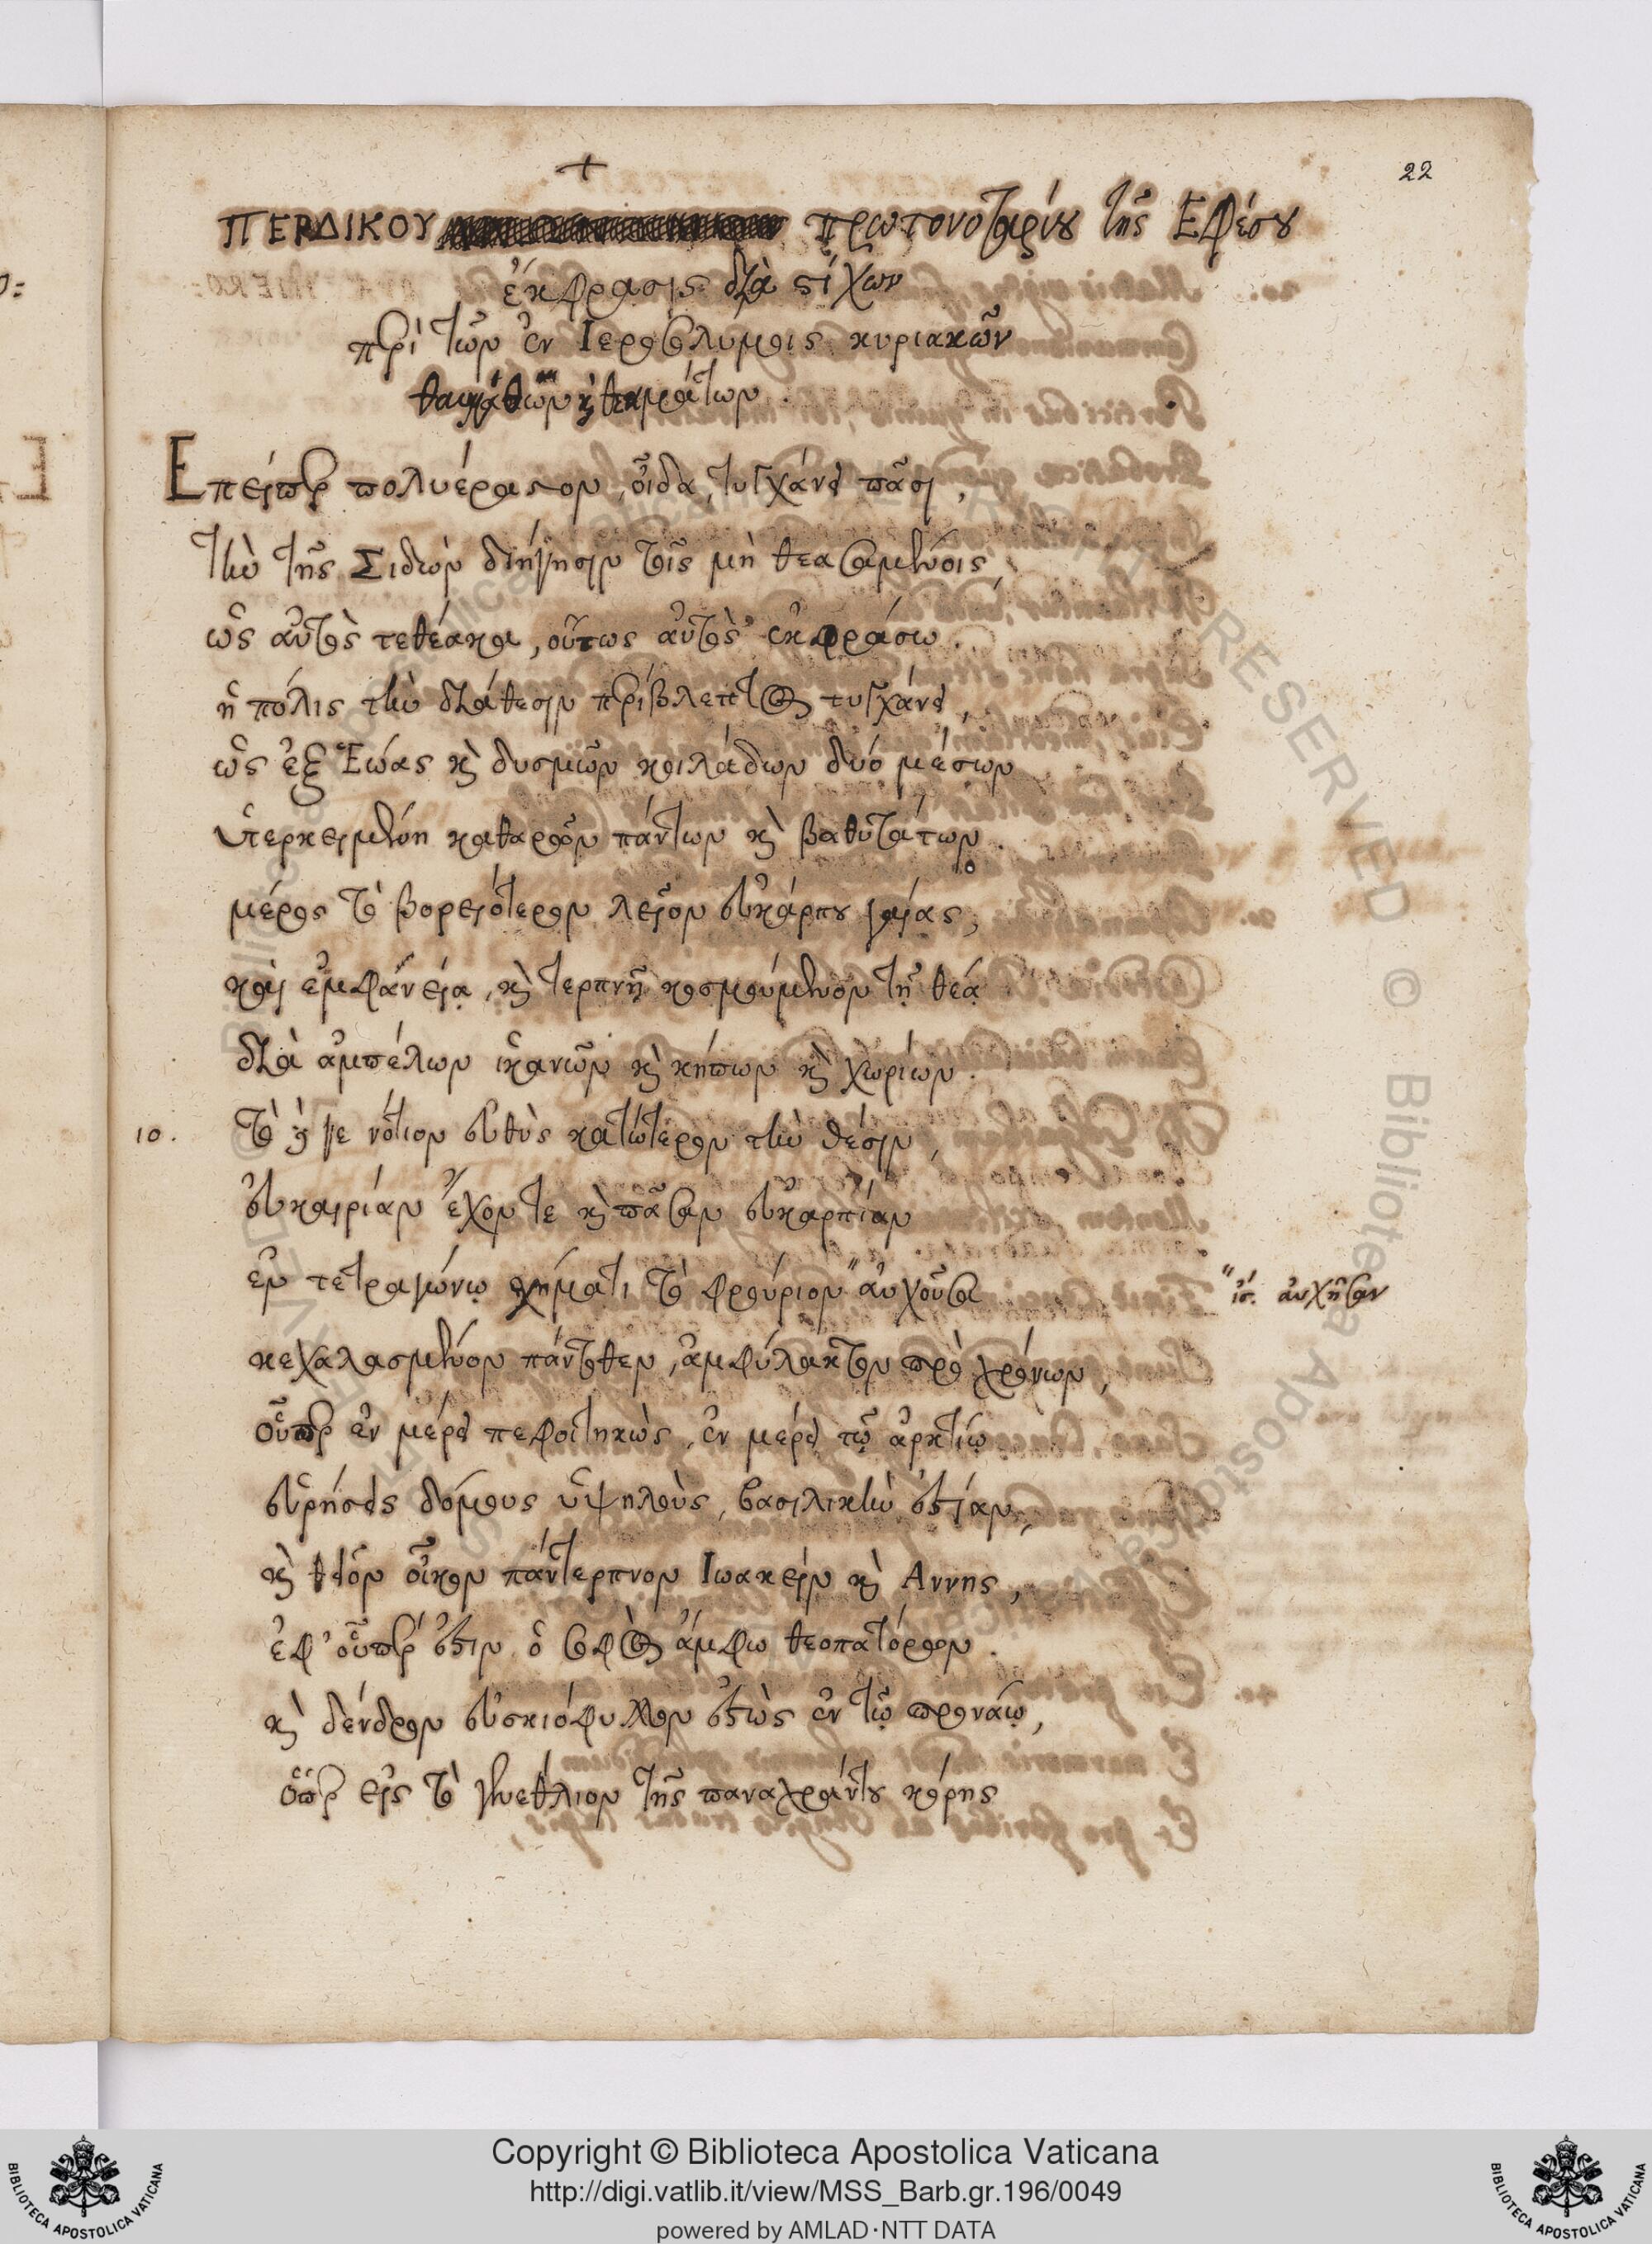 22
+
ΠΕΡΔΙΚΟΥ πρωτονοταρίου τῆς Εφέσου
ἔκφρασις διὰ στίχων
περὶ τῶν ἐν Ιεροσολύμοις κυριακῶν
θεαμάτων
Επείπερ πολυέραστον, οἶδα, τυγχάνει πᾶσι,
τὴν τῆς Σιὼν διήγησιν τοῖς μὴ θεασαμένοις,
ὡς αὐτὸς τεθέακα, οὕτως αὐτὸς ἐκφράσω.
ἡ πόλις τὴν διάθεσιν περίβλεπτος τυγχάνει,
ὡς ἐξ Ἑώας καὶ δυσμῶν κοιλάδων δύο μέσων
ὑπερκειμένη καθαρῶν πάντων καὶ βαθυτάτων.
μέρος τὸ βορειότερον λεῖον εὐκάρπου γαίας,
καὶ ἐμφάνεια, καὶ τερπνῇ κοσμούμενον τῇ θέᾳ
διὰ ἀμπέλων ἱκανῶν καὶ κήπων καὶ χωρίων.
10. τὸ δέ γε νότιον εὐθὺς κατώτερον τὴν θέσιν,
εὐκαιρίαν ἔχον τε καὶ πᾶσαν εὐκαρπίαν
ἐν τετραγώνῳ σχήματι τὸ φρούριον" αὐχοῦσα
" ἴσ. αὐχῆσαν
κεχαλασμένον πάντοθεν, ἀμφύλακτον πρὸ χρόνων,
οὗπερ ἐν μέρει πεφοιτηκὼς, ἐν μέρει τῷ ἀρκτίῳ
εὑρήσεις δόμους ὑψηλοὺς, βασιλικὴν ἑστίαν,
καὶ θεῖον οἶκον πάντερπνον Ιωακεὶμ καὶ Αννης,
ἐφ' οὗπέρ ἐστιν ὁ σορὸς ἄμφω θεοπατόρων.
καὶ δένδρον εὐσκιόφυλλον ἑστὼς ἐν τῷ προνάῳ,
ὅπερ εἰς τὸ γενέθλιον τῆς παναχράντου κόρης
Copyright © Biblioteca Apostolica Vaticana
http://digi.vatlib.it/view/MSS_Barb.gr.196/0049
powered by AMLAD·NTT DATA
BIBLIOTECA APOSTOLICA VATICANA
BIBLIOTECA APOSTOLICA VATICANA